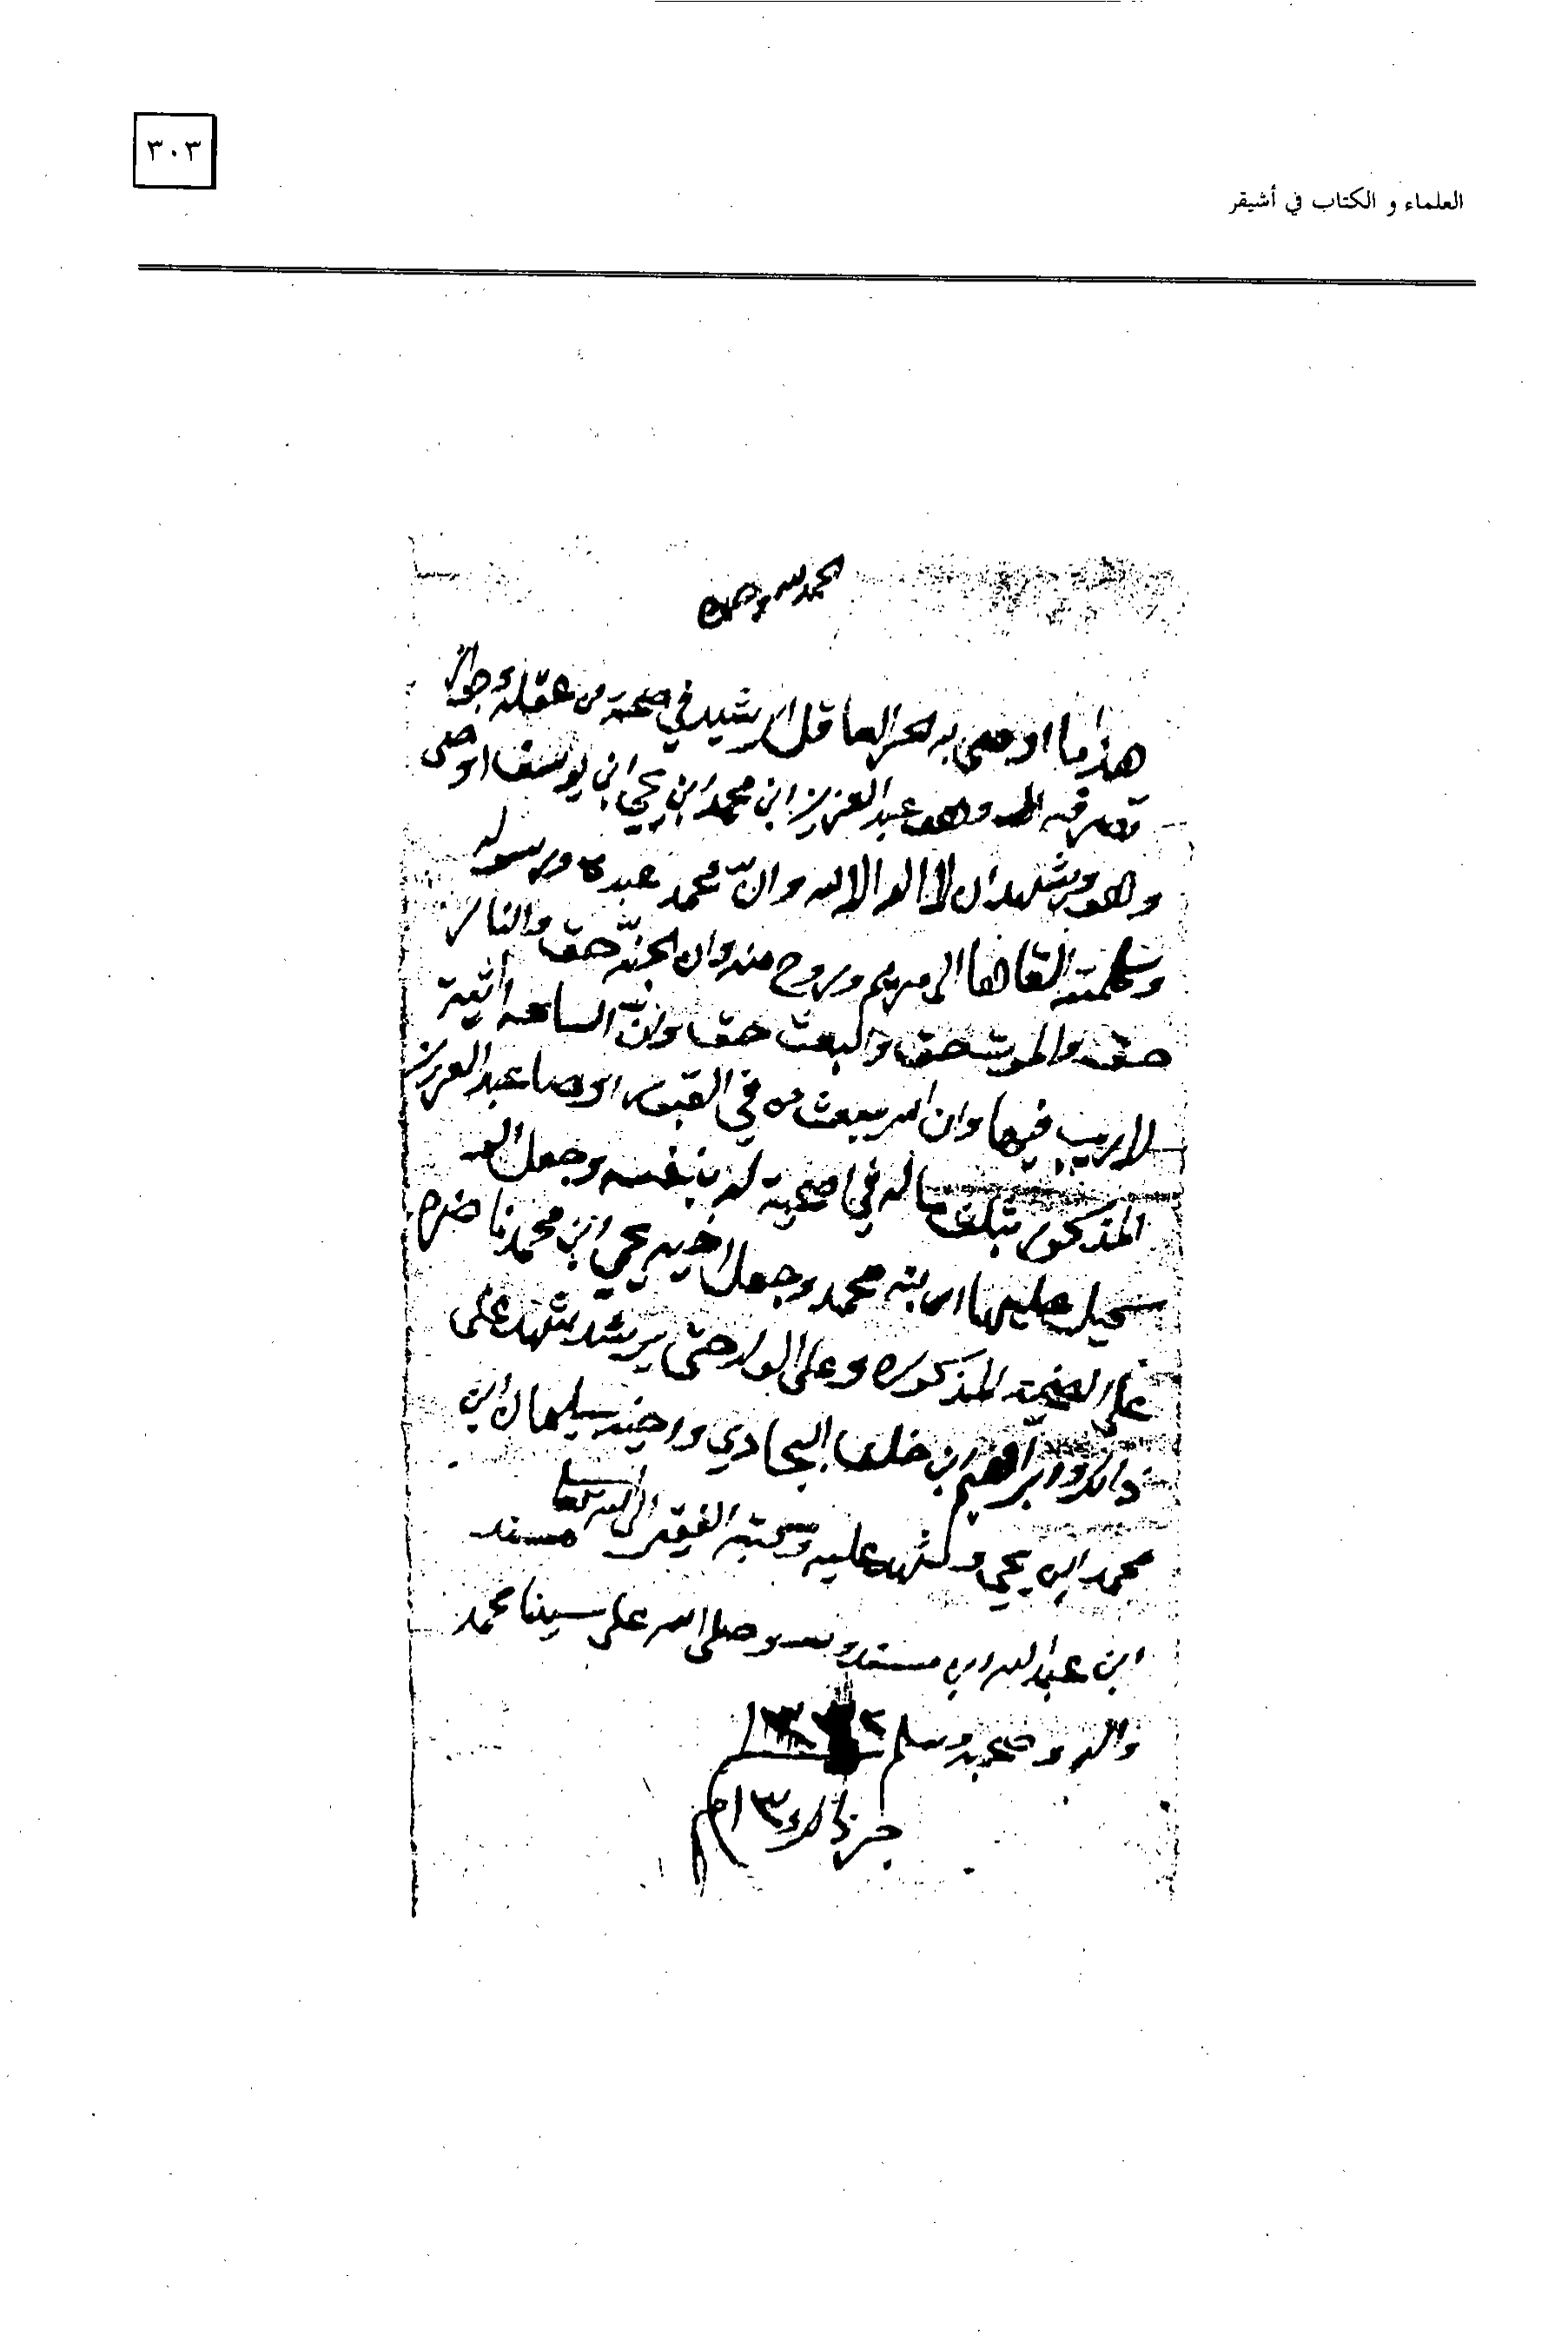 ٣٠٣
العلماء و الكتاب في أشيقر
الحمد لله وحده
هذا ما اوصى به الحر العاقل الرشيد في صحة من عقله وجواز
تصرفه وهو عبد العزيز ابن محمد ابن يحي ابن يوسف اوصى
وهو يشهد ان لا اله الا الله وان محمد عبده ورسوله
وكلمته القاها الى مريم وروح منه وان الجنة حق والنار
حق والموت حق والبعث حق وان الساعه اتية
لا ريب فيها وان الله يبعث من في القبور اوصا عبد العزيز
المذكور بثلث ماله في اضحية له بنفسه وجعل
عليها ابنه محمد وجعل اخيه يحي ابن محمد ناضر
على الضحية المذكوره وعلى الولد حتى يرشد شهد على
ذالك ابراهيم ابن خلف البجادي واخيه سليمان ابن
محمد ابن يحي وشهد عليه وكتبه الفقير الى الله مسند
ابن عبد الله ابن مسند وصلى الله على سيدنا محمد
واله وصحبه وسلم